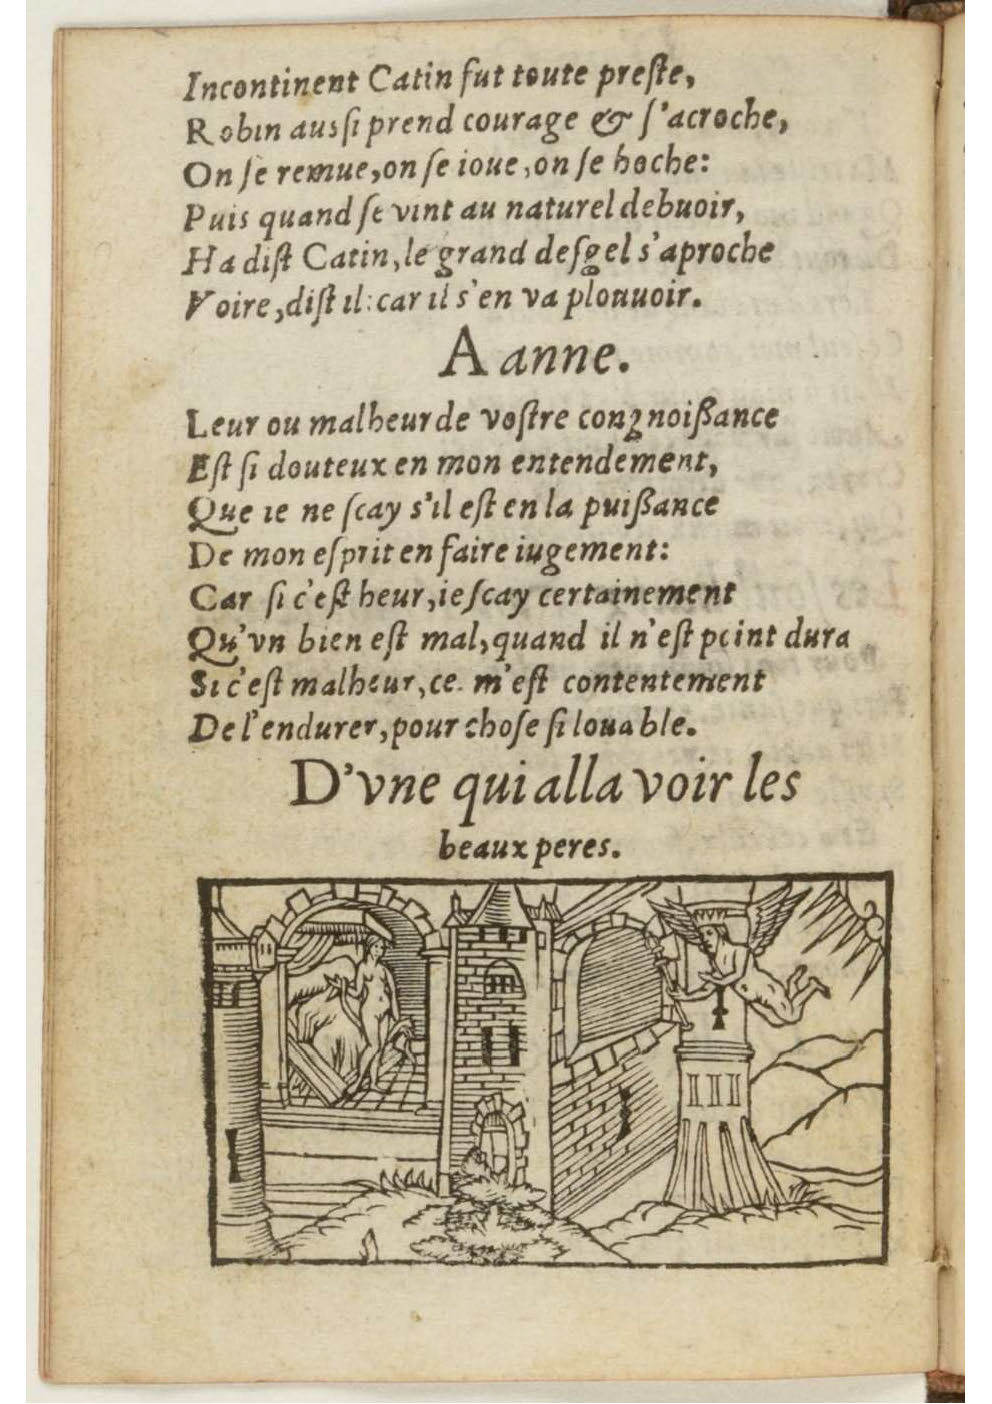 Incontinent Catin fut toute preſte,
Robin ausſi prend courage & ſ'acroche,
On ſe remue, on ſe ioue, on ſe hoche:
Puis quand ſe vint au naturel debuoir,
Ha diſt Catin, le grand deſgel s'aproche
Voire, diſt il: car il s'en va plouuoir.
A anne.
Leur ou malheur de voſtre congnoiſſance
Eſt ſi douteux en mon entendement,
Que ie ne ſcay s'il eſt en la puiſſance
De mon eſprit en faire iugement:
Car ſi c'eſt heur, ie ſcay certainement
Qu'vn bien eſt mal, quand il n'eſt point dura
Si c'eſt malheur, ce m'eſt contentement
De l'endurer, pour choſe ſi louable.
D'vne qui alla voir les
beaux peres.